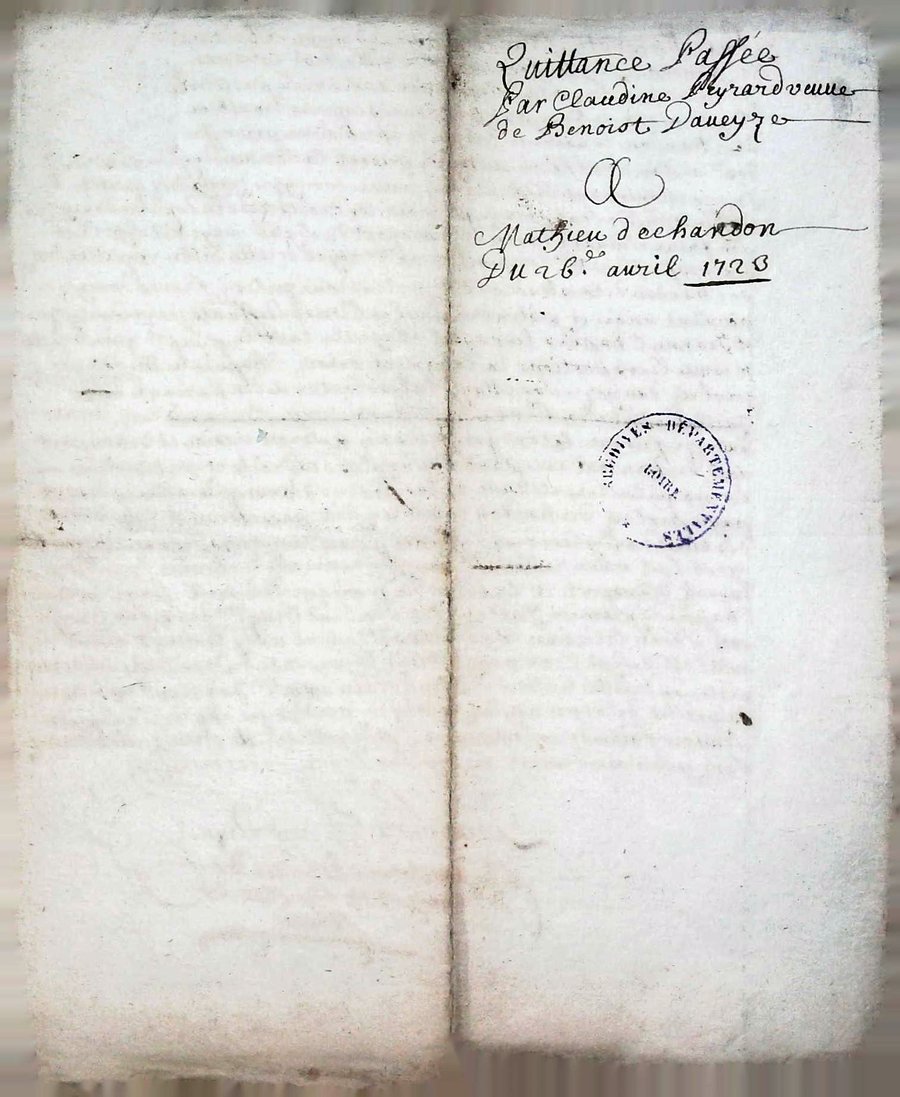 Quittance Passée
Par Claudine Peyrard veuue
de Benoist Daueyze
A
Mathieu dechandon
Du 26.e auril 1723
ARCHIVES DÉPARTEMENTALES
LOIRE